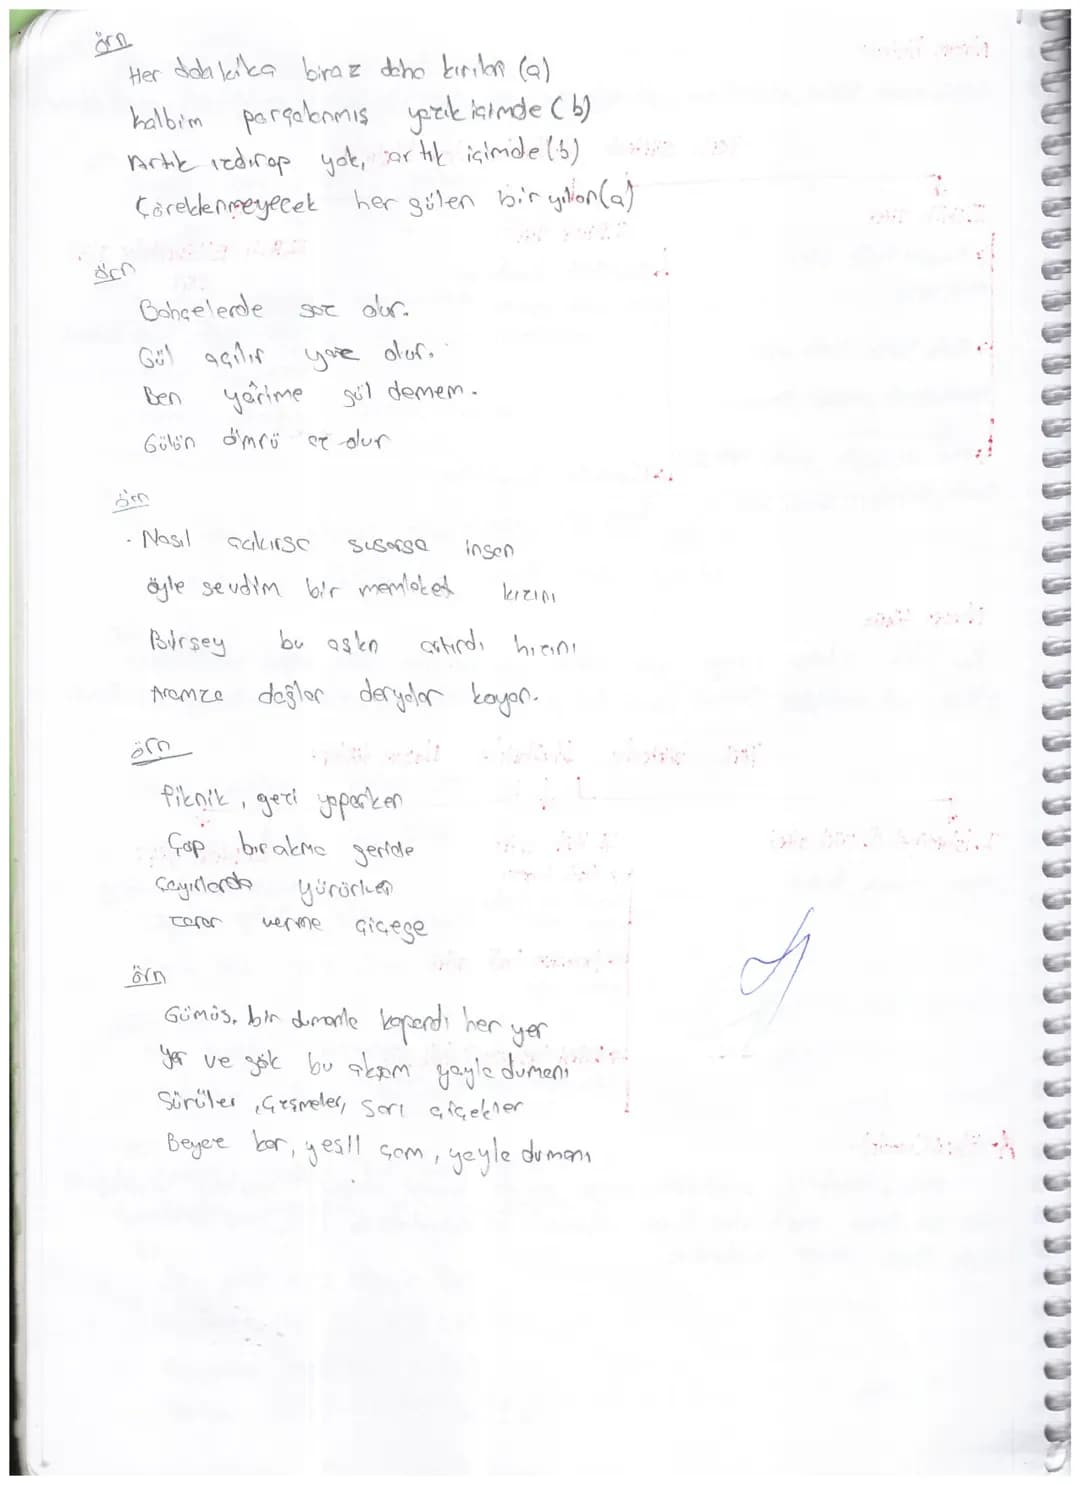 örn
Her dakika biraz daha kırılan (a)
kalbim parçalanmış yazık içimde (b)
Artık ızdırap yok, artık içimde (b)
Çöreklenmeyecek her gülen bir yılan (a)
örn
Bahçelerde saz olur.
Gül açılır yaz olur.
Ben yârime gül demem.
Gülün ömrü az olur
örn
. Nasıl susarsa insan
öyle sevdim bir memleket kızını
Birşey bu aşkın artırdı hızını
Aramıza dağlar deryalar koyan.
örn
Piknik, gezi yaparken
Çöp bırakma geride
Çayırlarda yürürken
zarar verme çiçeğe
örn
Gümüş, bir dumanla kapandı her yer
Yer ve gök bu akşam yayla dumanı
Sürüler, Çeşmeler, Sarı çiçekler
Beyaz kar, yeşil çam, yayla dumanı